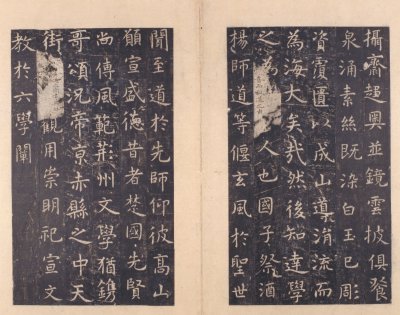 攝齋趍奧並鏡雲披俱飡
泉涌素絲既染白玉已彫
資覆匱以成山導涓流而
為海大矣哉然後知達學
之為人也國子祭酒
揚師道等偃玄風於聖世
聞至道於先師仰彼高山
願宣盛德昔者楚國先賢
尚傳風範荊州文學猶鐫
哥頌況帝京赤縣之中天
街觀用崇明祀宣文
教於六學闡